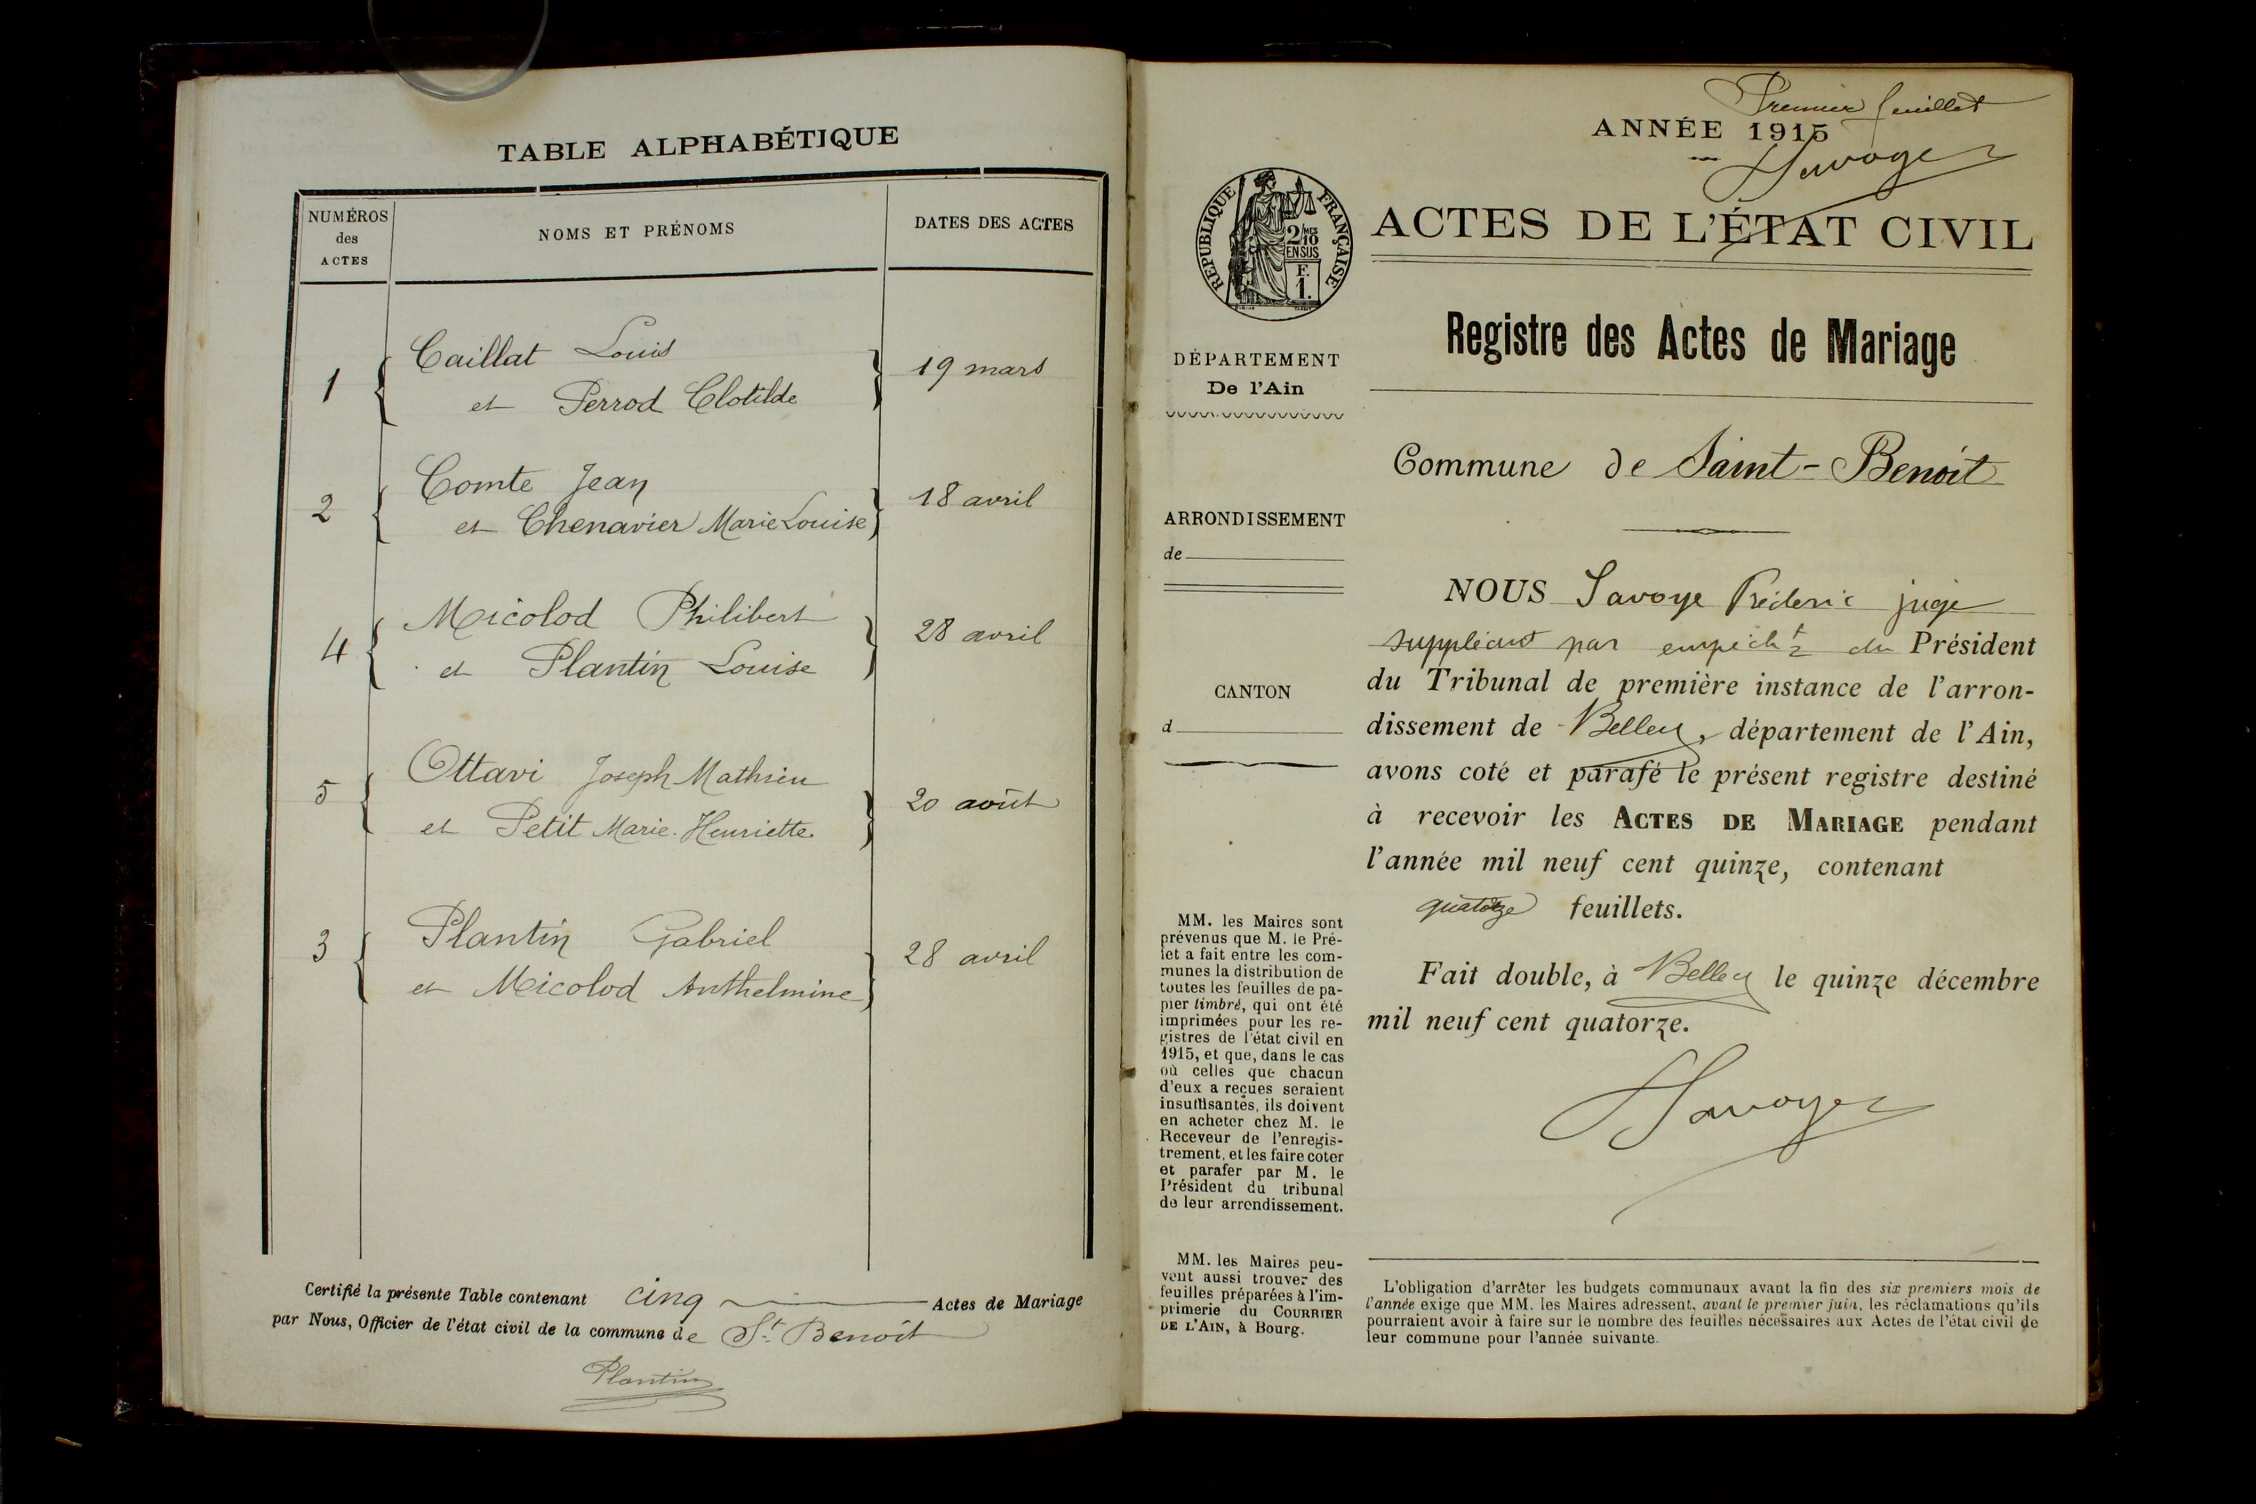 TABLE ALPHABÉTIQUE
NUMÉROS des ACTES
NOMS ET PRÉNOMS
DATES DES ACTES
1 Caillat Louis
et Perrod Clotilde
19 mars
2 Comte Jean
et Chenavier Marie Louise
18 avril
4 Micolod Philibert
et Plantin Louise
28 avril
5 Ottavi Joseph Mathieu
et Petit Marie Henriette
20 août
3 Plantin Gabriel
et Micolod Anthelmine
28 avril
Certifié la présente Table contenant cinq Actes de Mariage
par Nous, Officier de l'état civil de la commune de St. Benoît
Plantin
Premier feuillet
ANNÉE 1915
Savoye
RÉPUBLIQUE FRANÇAISE
2/10 MES
EN SUS
F.
1.
ACTES DE L'ÉTAT CIVIL
Registre des Actes de Mariage
DÉPARTEMENT
De l'Ain
Commune de Saint-Benoît
ARRONDISSEMENT
de
CANTON
d
NOUS Savoye Fréderic juge
suppléant par empêcht du Président
du Tribunal de première instance de l'arron-
dissement de Belley, département de l'Ain,
avons coté et parafé le présent registre destiné
à recevoir les ACTES DE MARIAGE pendant
l'année mil neuf cent quinze, contenant
quatorze feuillets.
Fait double, à Belley le quinze décembre
mil neuf cent quatorze.
Savoye
MM. les Maires sont
prévenus que M. le Pré-
fet a fait entre les com-
munes la distribution de
toutes les feuilles de pa-
pier timbré, qui ont été
imprimées pour les re-
gistres de l'état civil en
1915, et que, dans le cas
où celles que chacun
d'eux a reçues seraient
insuffisantes, ils doivent
en acheter chez M. le
Receveur de l'enregis-
trement, et les faire coter
et parafer par M. le
Président du tribunal
de leur arrondissement.
MM. les Maires peu-
vent aussi trouver des
feuilles préparées à l'im-
primerie du COURRIER
DE L'AIN, à Bourg.
L'obligation d'arrêter les budgets communaux avant la fin des six premiers mois de
l'année exige que MM. les Maires adressent, avant le premier juin, les réclamations qu'ils
pourraient avoir à faire sur le nombre des feuilles nécessaires aux Actes de l'état civil de
leur commune pour l'année suivante.